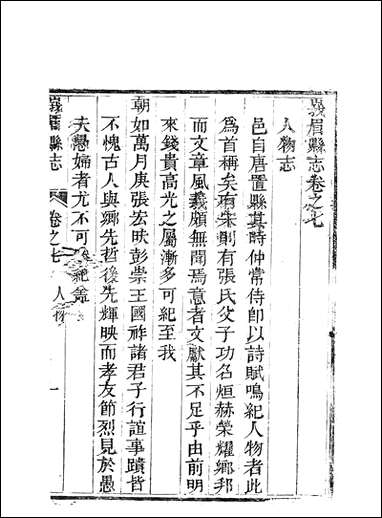 峩眉縣志卷之七
人物志
邑自唐置縣其時仲常侍卽以詩賦鳴紀人物者此
爲首稱矣有宋則有張氏父子功名烜赫榮耀鄉邦
而文章風義頗無聞焉意者文獻其不足乎由前明
來錢貴高光之屬漸多可紀至我
朝如萬月庚張宏映彭崇王國祚諸君子行誼事蹟皆
不愧古人與鄉先哲後先輝映而孝友節烈見於愚
夫愚婦者尤不可 紀
峩眉縣志
卷之七
人物
一